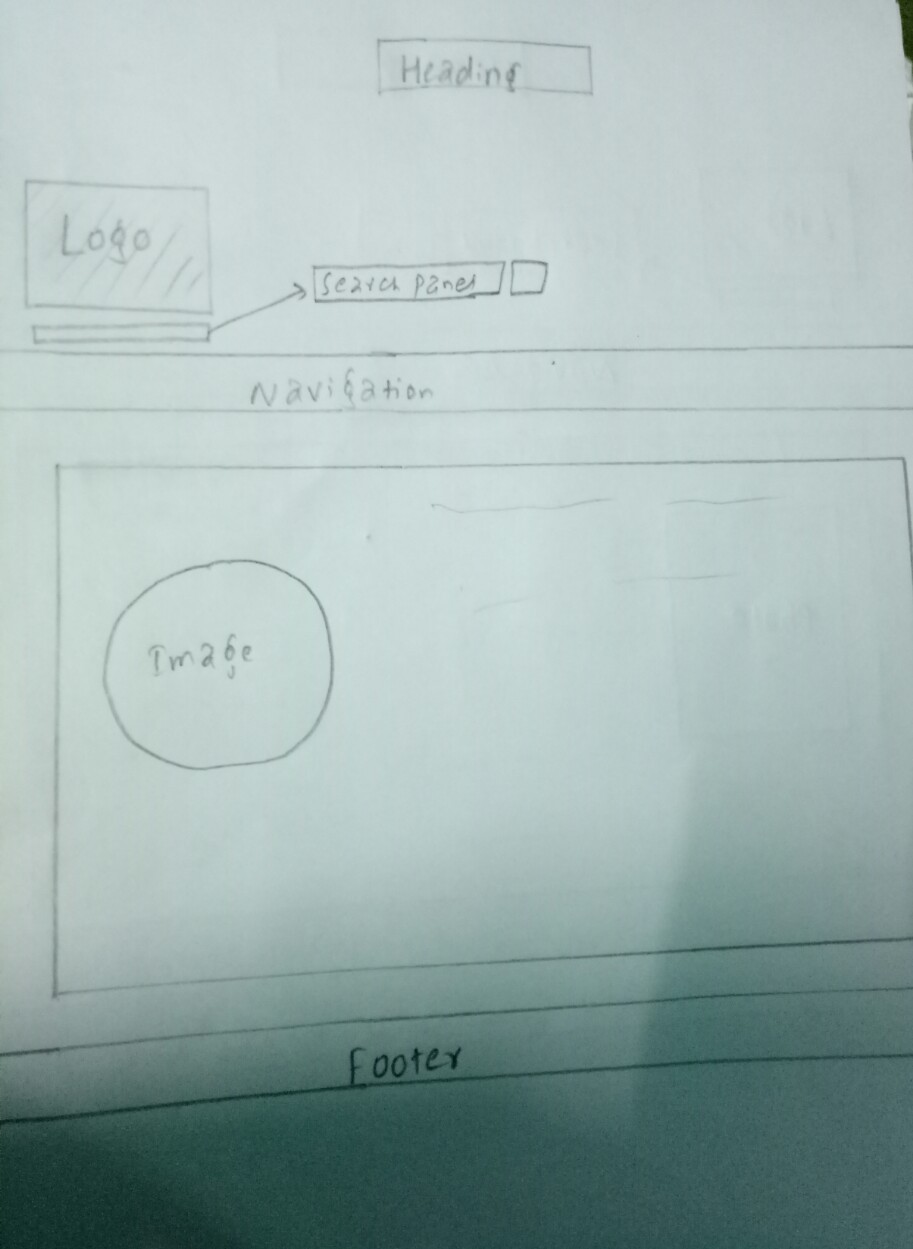 Heading
Logo
Search panel
Navigation
Image
Footer